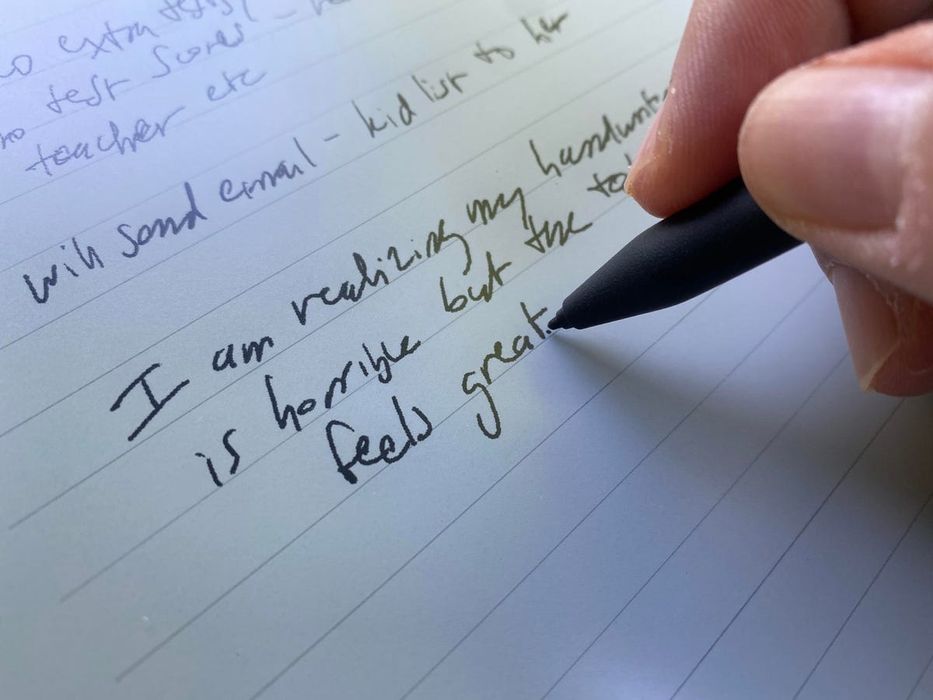 extra tests
test scores -
teacher etc
will send email - kid list to her
I am realizing my
is horrible but the
feels great.